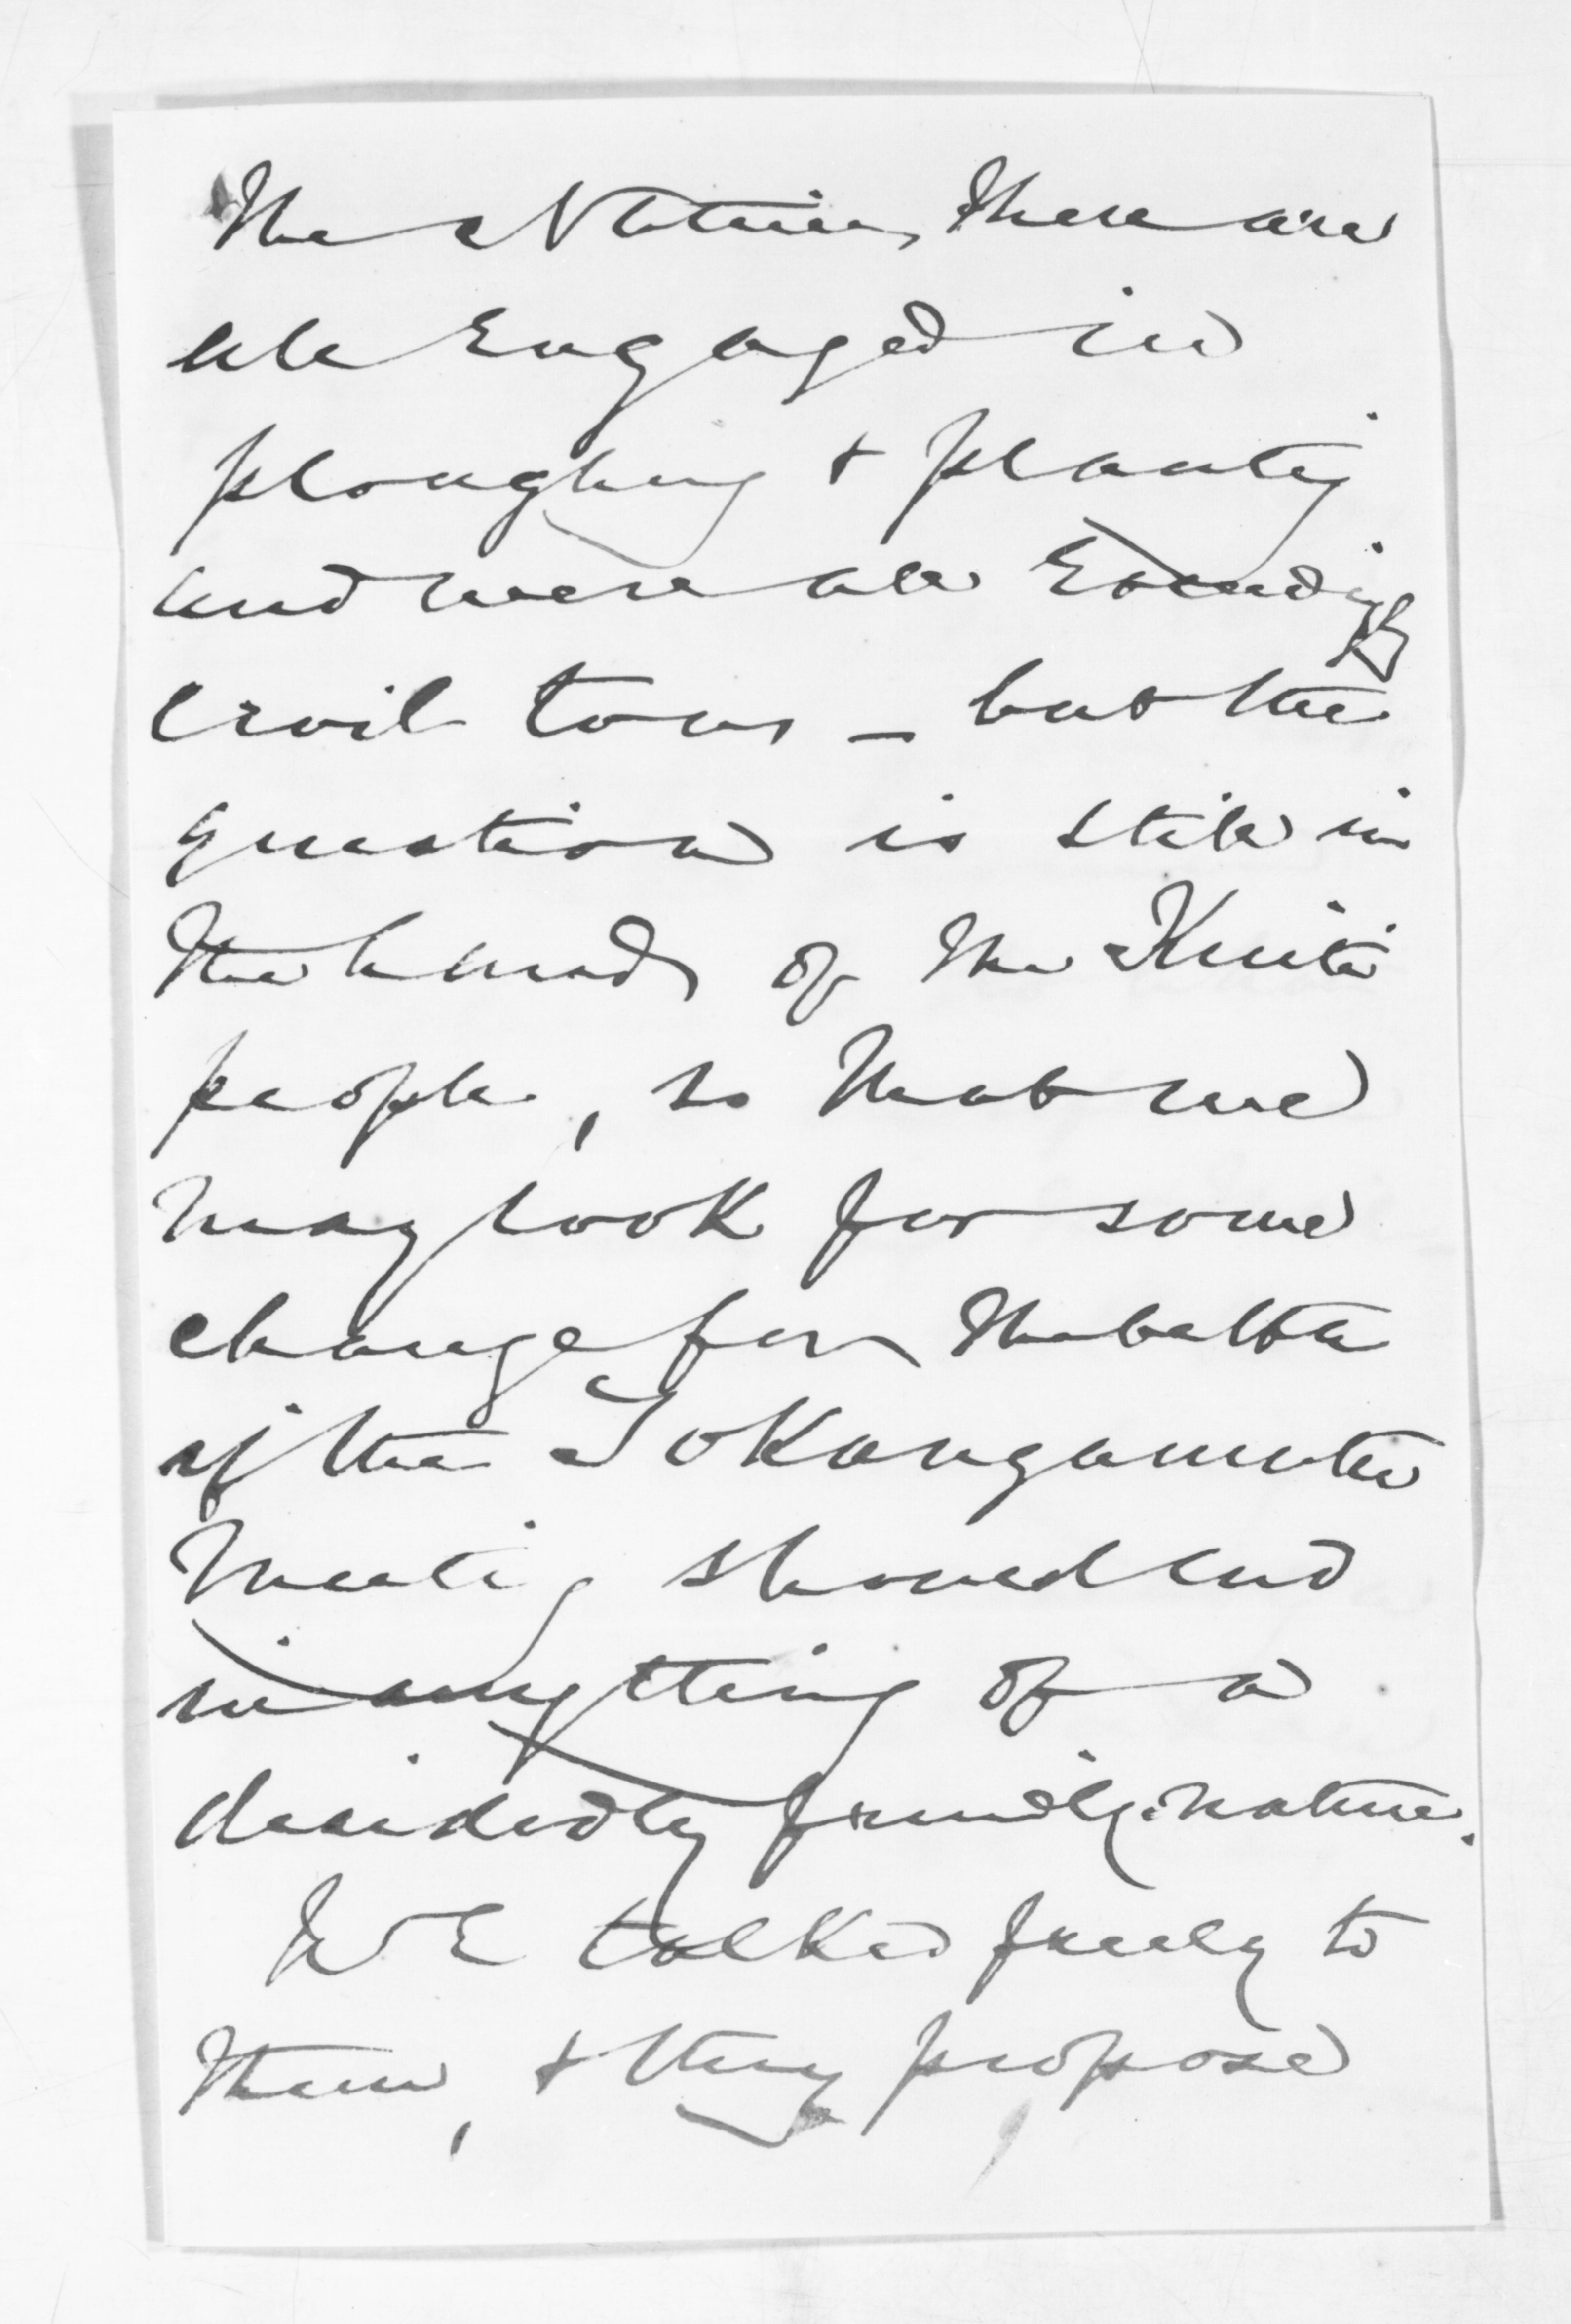 The Natives, there are
all Engaged in
ploughing & planting
and were all Exceedingly
civil to us – but the
question is still in
the hands of the Kuiti
people, so that we
may look for some
change for the better
if the Tokangamutu
Meeting should end
in anything of a
decidedly friendly nature.
We talked freely to
them, & they propose